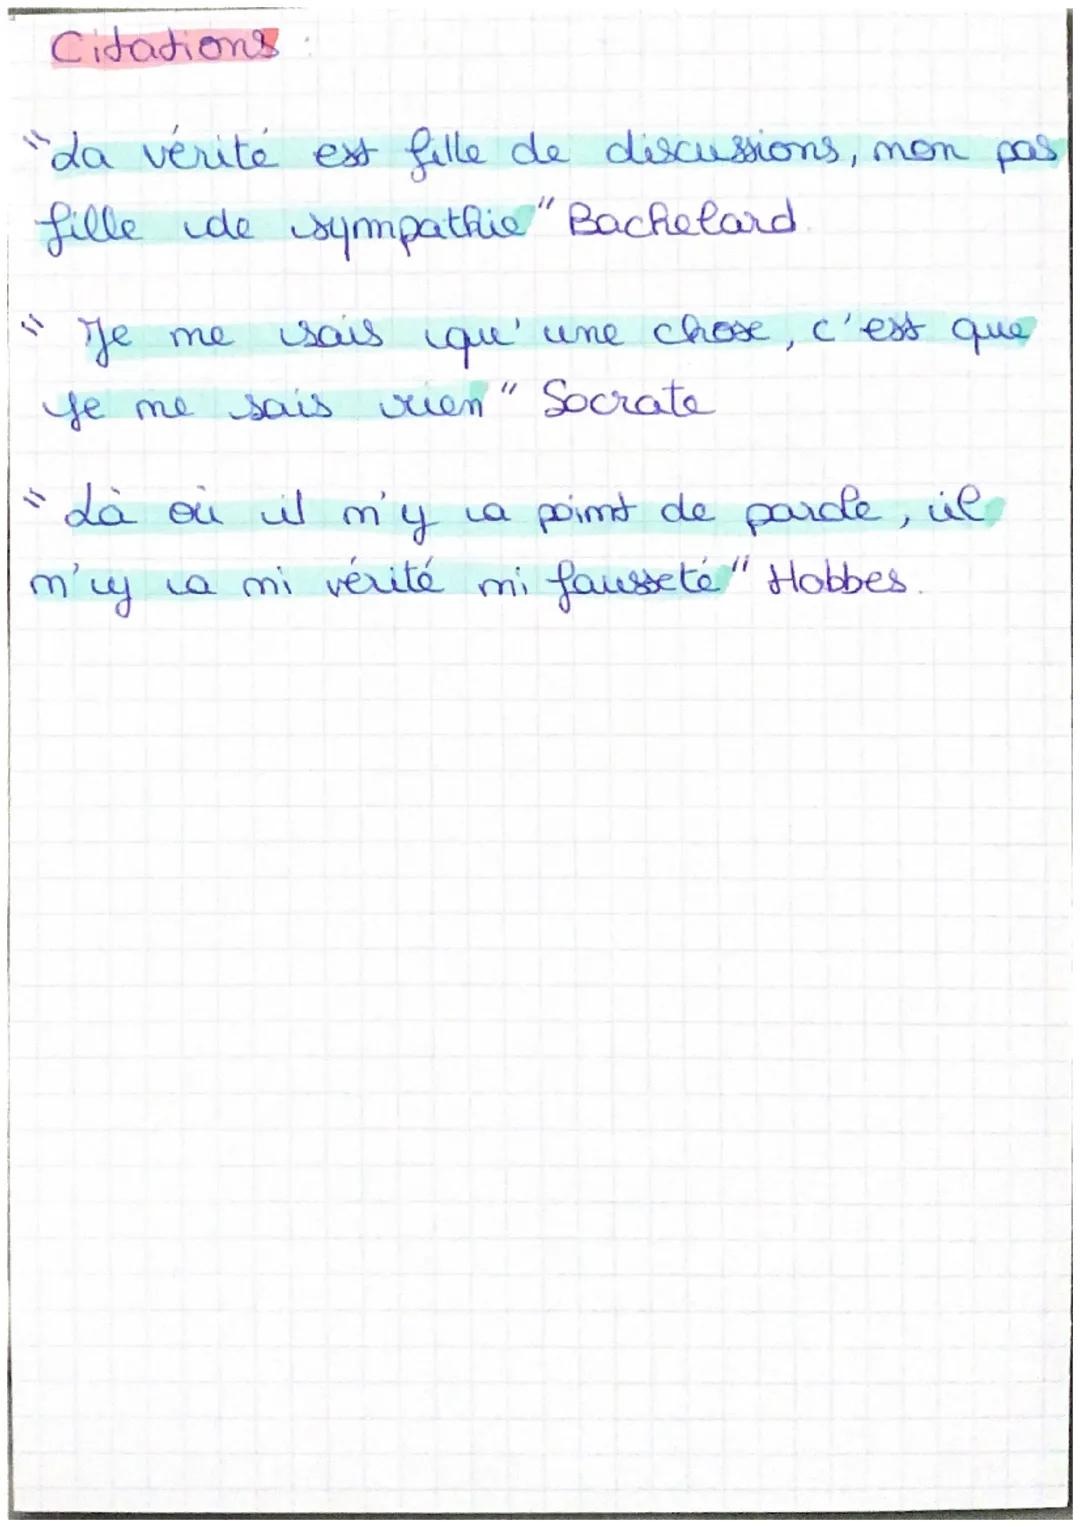 Citations :
"La vérité est fille de discussions, non pas
fille de sympathie" Bachelard.
"Je ne sais qu'une chose, c'est que
je ne sais rien" Socrate
"Là où il n'y a point de parole, il
n'y a ni vérité ni fausseté" Hobbes.